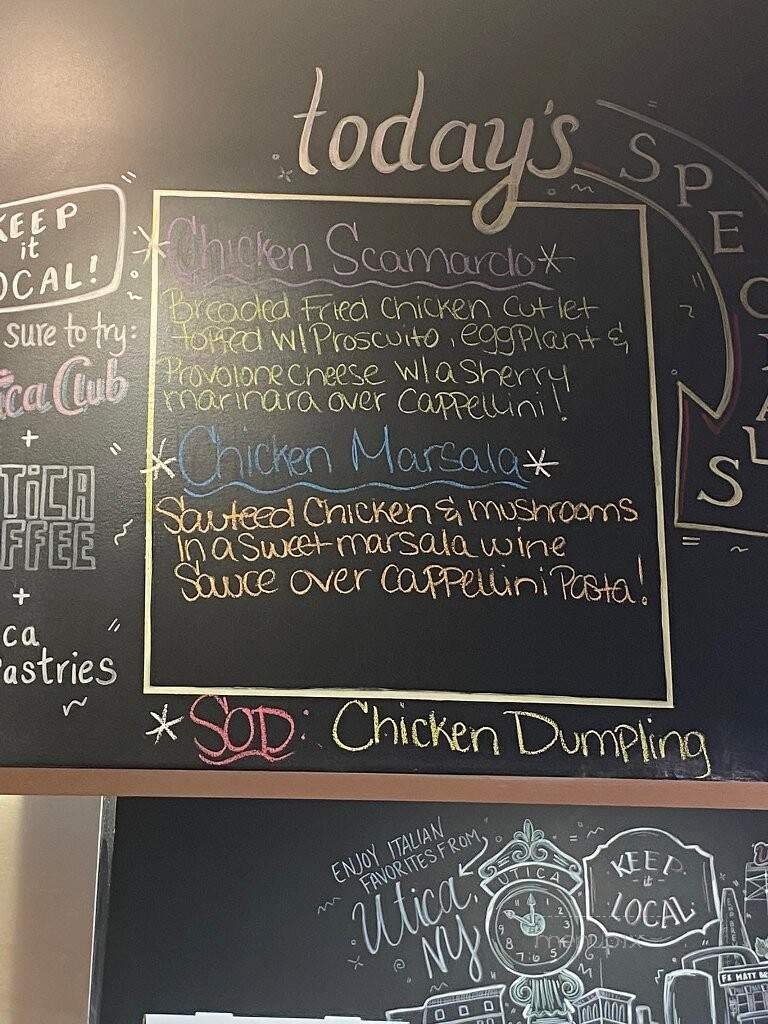 today's
SPECIALS
KEEP
it
OCAL!
sure to try:
ica Club
+
TICA
FFEE
+
ca
astries
*Chicken Scamardo*
Breaded Fried Chicken Cutlet
topped w/ Proscuito, eggplant &
Provolone cheese w/ a Sherry
marinara over cappellini!
*Chicken Marsala*
Sauteed Chicken & mushrooms
in a sweet marsala wine
Sauce over cappellini Pasta!
*SOD: Chicken Dumpling
ENJOY ITALIAN
FAVORITES FROM
Utica,
NY
UTICA
KEEP
it
LOCAL
menupix
FX MATT BR